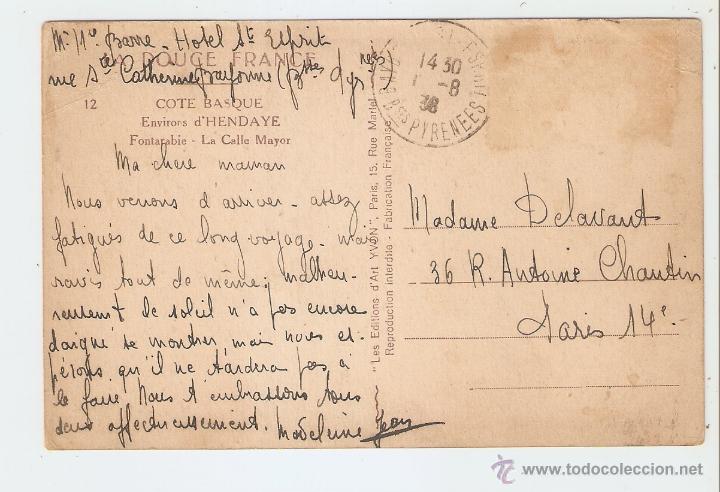 Mr Mme Barre - Hotel St Esprit
LA DOUCE FRANCE
rue Ste Catherine Bayonne (Bsses Pyrnées)
12
COTE BASQUE
Environs d'HENDAYE
Fontarabie - La Calle Mayor
Ma chère maman
Nous venons d'arriver - assez
fatigués de ce long voyage, mais
ravis tout de même; malheu-
reusement le soleil n'a pas encore
daigné se montrer, mais nous es-
pérons qu'il ne tardera pas à
le faire. Nous t'embrassons tous
deux affectueusement. Madeleine Jean
"Les Editions d'Art YVON", Paris, 15, Rue Martel
Reproduction Interdite - Fabrication Française
14 30
1 -8
38
BSES PYRENEES
Madame Delavant
36 R. Antoine Chantin
Paris 14e.
www.todocoleccion.net